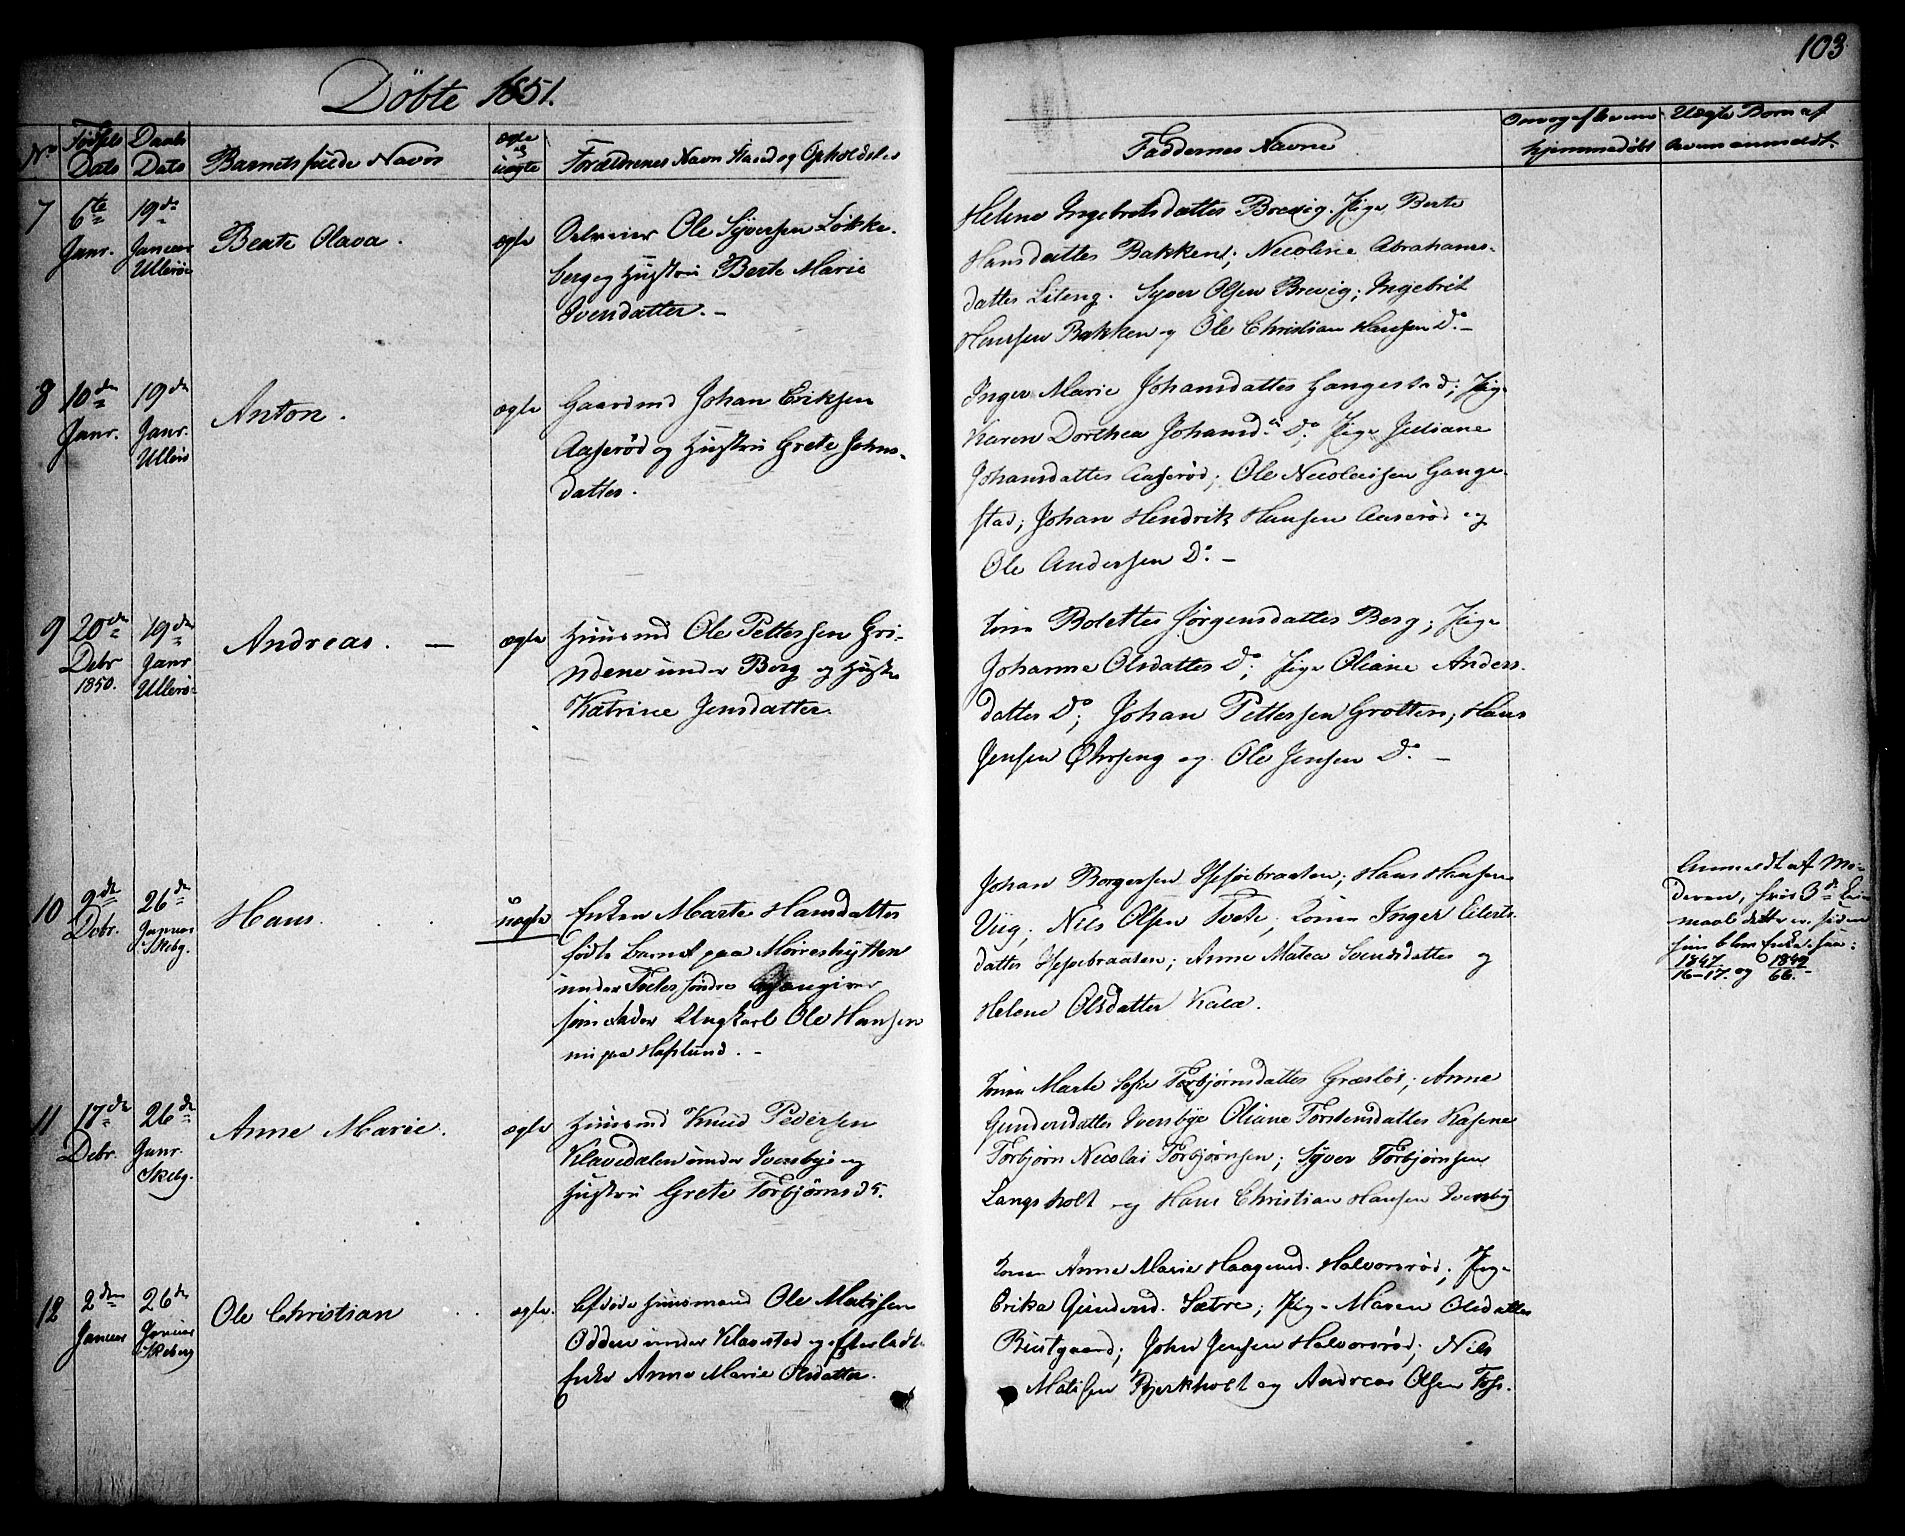 103
Döbte 1851.
No Födsels Dato Daabs Dato Barnets fulde Navn ægte og uægte Forældrenes Navn Stand og Opholdsted
Faddernes Navne hjemmedøbt Uægte Børn af
7 6te Janr. 19de Januar Ullerøe
Beate Olava. ægte
Selveier Ole Syversen Løkke-
berg og Hustru Berte Marie
Svendatter. -
Helene Ingebretsdatter Brevig. Pige Berte
Hansdatter Bakken; Nicoline Abrahams-
datter Lileng. Syver Olsen Brevig; Ingebrit
Hansen Bakken og Ole Christian Hansen Do. -
8 10de Janr. 19de Janr. Ullerø
Anton. ægte
Gaardmd Johan Eriksen
Aaserød og Hustru Grete Johns-
datter.
Inger Marie Johansdatter Gangestad; Pige
Karen Dorthea Johansd.r Do; Pige Juliane
Johansdatter Aaserød; Ole Nicolaisen Gange-
stad; Johan Hendrik Hansen Aaserød og
Ole Andersen Do. -
9 20de Debr 1850. 19de Janr Ullerø
Andreas. - ægte
Huusmd Ole Pettersen Gri-
ndene under Berg og Hustr
Katrine Jensdatter.
Kone Bolette Jørgensdatter Berg; Pige
Johanne Olsdatter Do; Pige Oliane Anders-
datter Do; Johan Pettersen Grotten; Hans
Jensen Ørseng og Ole Jensen Do. -
10 9de Debr. 26de Januar Skebg.
Hans. uægte
Enken Marte Hansdatter
fødte Barnet paa Mørreshytten
under Tvetes søndre angiver
som Fader Ungkarl Ole Hansen
nu paa Haslund. -
Johan Borgersen Hesjebraaten; Hans Hansen
Viig; Nils Olsen Tvete; Konen Inger Eilerts-
datter Hesjebraaten; Anne Matea Svendsdatter og
Helene Olsdatter Kala.
Anmeldt af Mo-
deren, hvis 3de Lei-
maal dette er, siden
hun blev Enke. see:
1847 16-17. og 1849 66. -
11 17de Debr. 26de Janr. Skebg.
Anne Marie. ægte
Huusmd Knud Pedersen
Klavedalen under Iversbye og
Hustru Grete Torbjörnsdr.
Konen Marte Sofie Torbjørnsdatter Græsløs; Anne
Gundersdatter Iversbye Oliane Torstensdatter Kasene
Torbjørn Nicolai Torbjørnsen; Syver Torbjørnsen
Langsholt og Hans Christian Hansen Iversby
12 2den Januar 26de Januar Skeberg
Ole Christian ægte.
Afdøde Huusmand Ole Matisen
Odden under Klavestad og efterladte
Enke Anne Marie Olsdatter.
Konen Anne Marie Haagensd. Halvorsrød; Pige
Erika Gundersd. Sætre; Pige Maren Olsdatter
Biustgaard; John Jensen Halvorsrød; Nils
Matisen Bjerkholt og Andreas Olsen Foss.